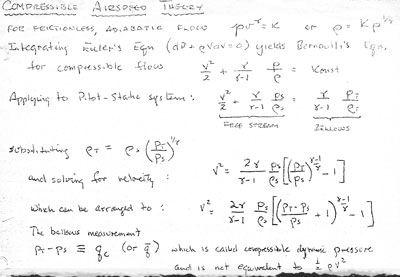 COMPRESSIBLE AIRSPEED THEORY
FOR FRICTIONLESS, ADIABATIC FLOW pv^γ = K or ρ = K p^{1/γ}
Integrating Euler's Eqn (dP + ρVdV = 0) yields Bernoulli's Eqn.
for compressible flow V²/2 + γ/(γ-1) P/ρ = Konst
Applying to Pitot-Static system : V²/2 + γ/(γ-1) Ps/ρs = γ/(γ-1) PT/ρT
FREE STREAM BELLOWS
substituting ρT = ρs (PT/Ps)^{1/γ}
and solving for velocity : V² = 2γ/(γ-1) Ps/ρs [(PT/Ps)^{(γ-1)/γ} - 1]
which can be arranged to : V² = 2γ/(γ-1) Ps/ρs [((PT-Ps)/Ps + 1)^{(γ-1)/γ} - 1]
The bellows measurement
PT - Ps ≡ qc (or q̄) which is called compressible dynamic pressure
and is not equivalent to ½ρV²